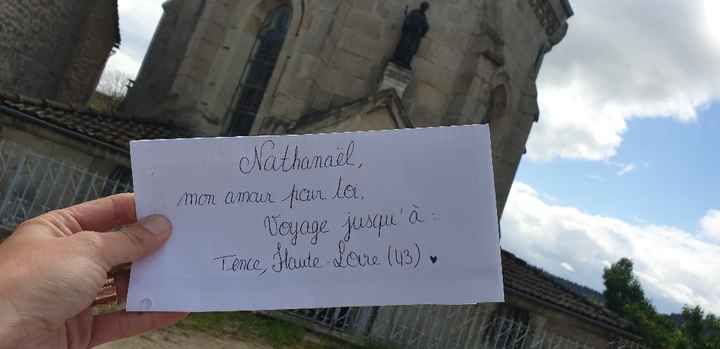 Nathanaël,
mon amour pour toi.
Voyage jusqu'à :
Tence, Haute-Loire (43) ♥